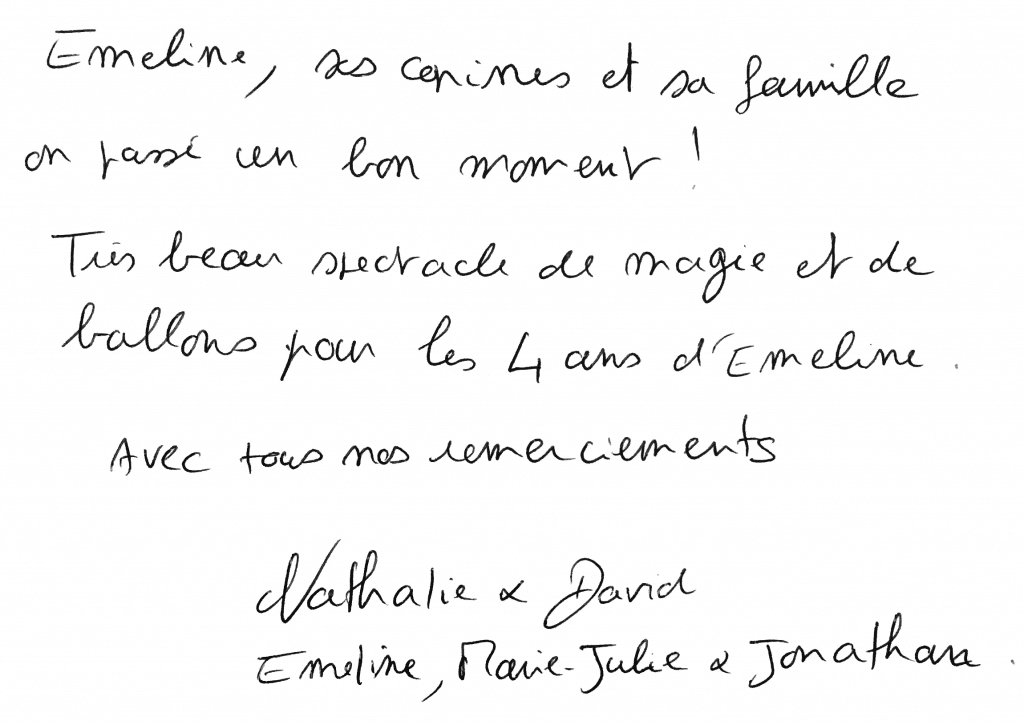 Emeline, ses copines et sa famille
on passé un bon moment !
Très beau spectacle de magie et de
ballons pour les 4 ans d'Emeline.
Avec tous nos remerciements
Nathalie & David
Emeline, Marie-Julie & Jonathan.